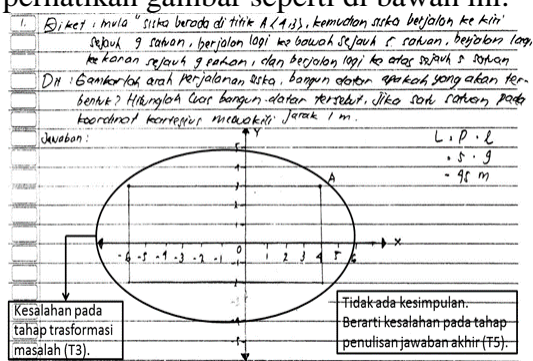 perhatikan gambar seperti di bawah ini:
1. Diket : mula" siska berada di titik A (4,3), kemudian siska berjalan ke kiri
sejauh 9 satuan, berjalan lagi ke bawah sejauh 5 satuan, berjalan lagi
ke kanan sejauh 9 satuan, dan berjalan lagi ke atas sejauh 5 satuan
Dit : Gambarlah arah perjalanan siska, bangun datar apakah yang akan ter-
bentuk? Hitunglah luas bangun datar tersebut, Jika satu satuan pada
koordinat kartesius mewakili Jarak 1 m.
Jawaban :
L = p . l
= 5 . 9
= 45 m
Y
A
X
-6 -5 -4 -3 -2 -1 0 1 2 3 4 5 6
Kesalahan pada
tahap trasformasi
masalah (T3).
Tidak ada kesimpulan.
Berarti kesalahan pada tahap
penulisan jawaban akhir (T5).